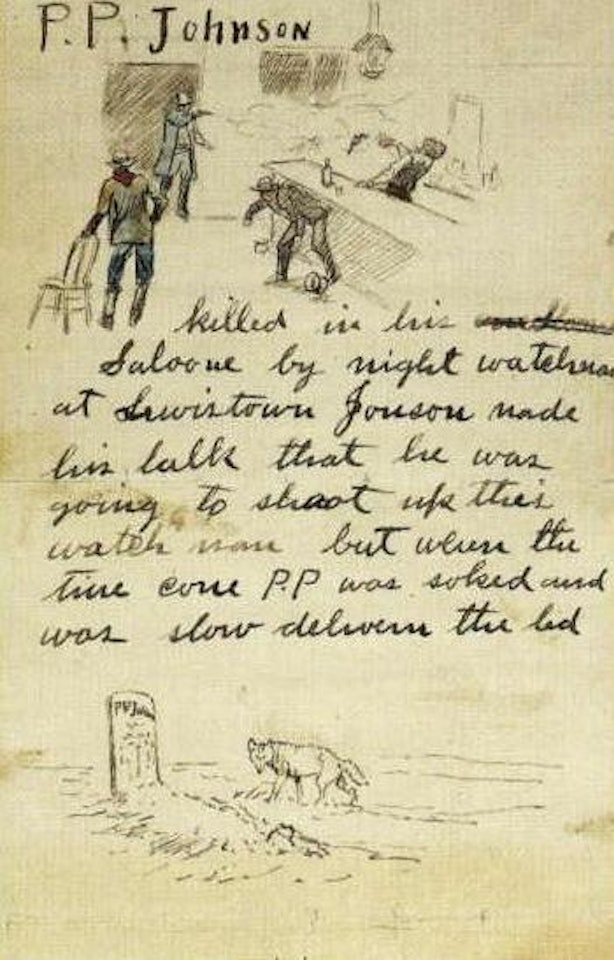 P.P. Johnson
killed in his
Saloone by night watchman
at Lewistown Jonson made
his talk that he was
going to shoot up this
watch man but when the
time come P.P was soked and
was slow delivern the led
P.P. John